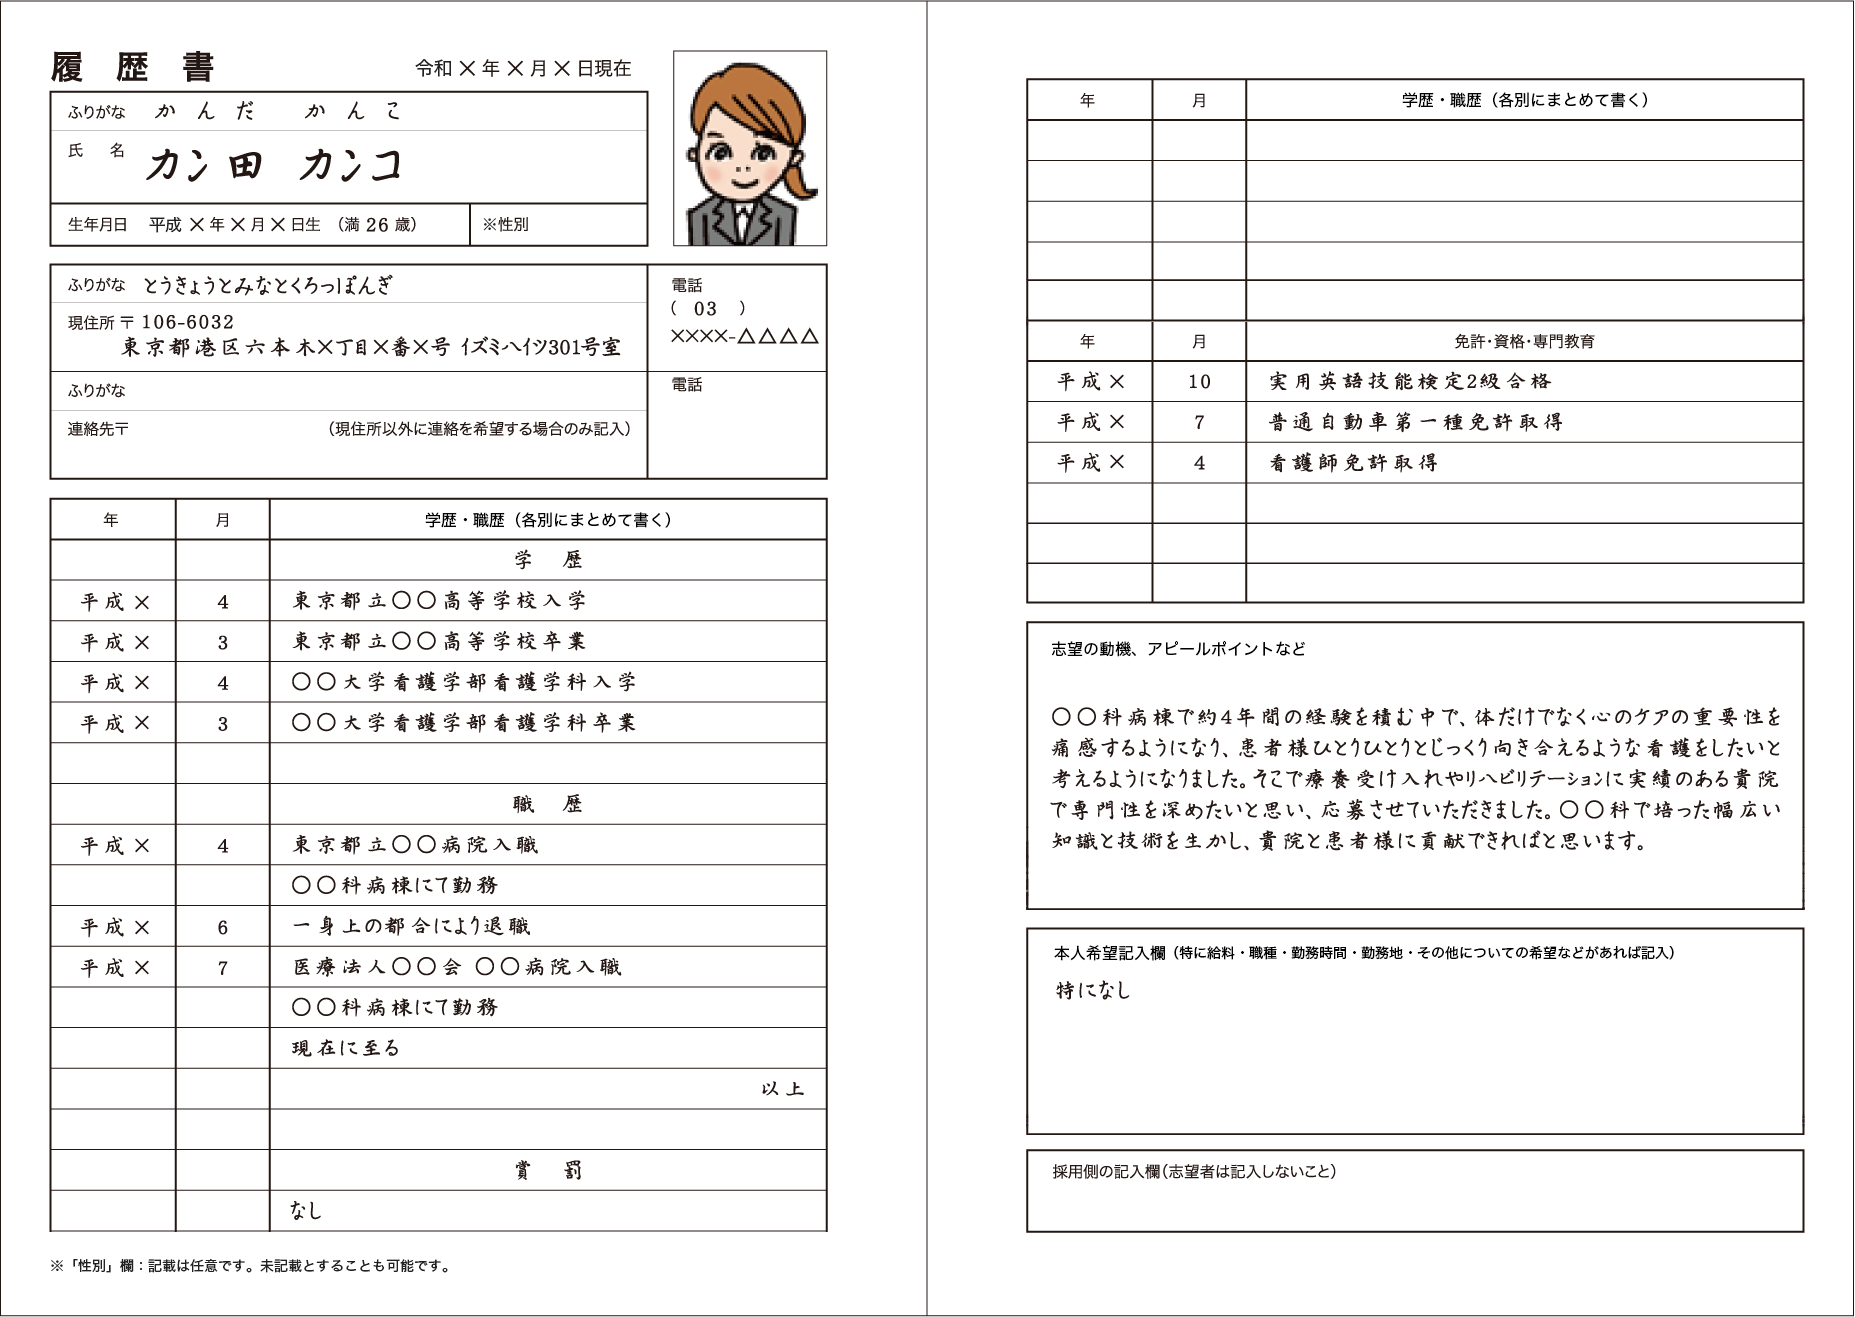 履歴書 令和×年×月×日現在
ふりがな かんだ かんこ
氏名 カン田 カンコ
生年月日 平成×年×月×日生 (満26歳) ※性別
ふりがな とうきょうとみなとくろっぽんぎ
電話
( 03 )
××××-△△△△
現住所 〒106-6032
東京都港区六本木×丁目×番×号 イズミハイツ301号室
ふりがな
電話
連絡先〒 (現住所以外に連絡を希望する場合のみ記入)
年 月 学歴・職歴(各別にまとめて書く)
学歴
平成× 4 東京都立〇〇高等学校入学
平成× 3 東京都立〇〇高等学校卒業
平成× 4 〇〇大学看護学部看護学科入学
平成× 3 〇〇大学看護学部看護学科卒業
職歴
平成× 4 東京都立〇〇病院入職
〇〇科病棟にて勤務
平成× 6 一身上の都合により退職
平成× 7 医療法人〇〇会 〇〇病院入職
〇〇科病棟にて勤務
現在に至る
以上
賞罰
なし
※「性別」欄:記載は任意です。未記載とすることも可能です。
年 月 学歴・職歴(各別にまとめて書く)
年 月 免許・資格・専門教育
平成× 10 実用英語技能検定2級合格
平成× 7 普通自動車第一種免許取得
平成× 4 看護師免許取得
志望の動機、アピールポイントなど
〇〇科病棟で約4年間の経験を積む中で、体だけでなく心のケアの重要性を
痛感するようになり、患者様ひとりひとりとじっくり向き合えるような看護をしたいと
考えるようになりました。そこで療養受け入れやリハビリテーションに実績のある貴院
で専門性を深めたいと思い、応募させていただきました。〇〇科で培った幅広い
知識と技術を生かし、貴院と患者様に貢献できればと思います。
本人希望記入欄(特に給料・職種・勤務時間・勤務地・その他についての希望などがあれば記入)
特になし
採用側の記入欄(志望者は記入しないこと)